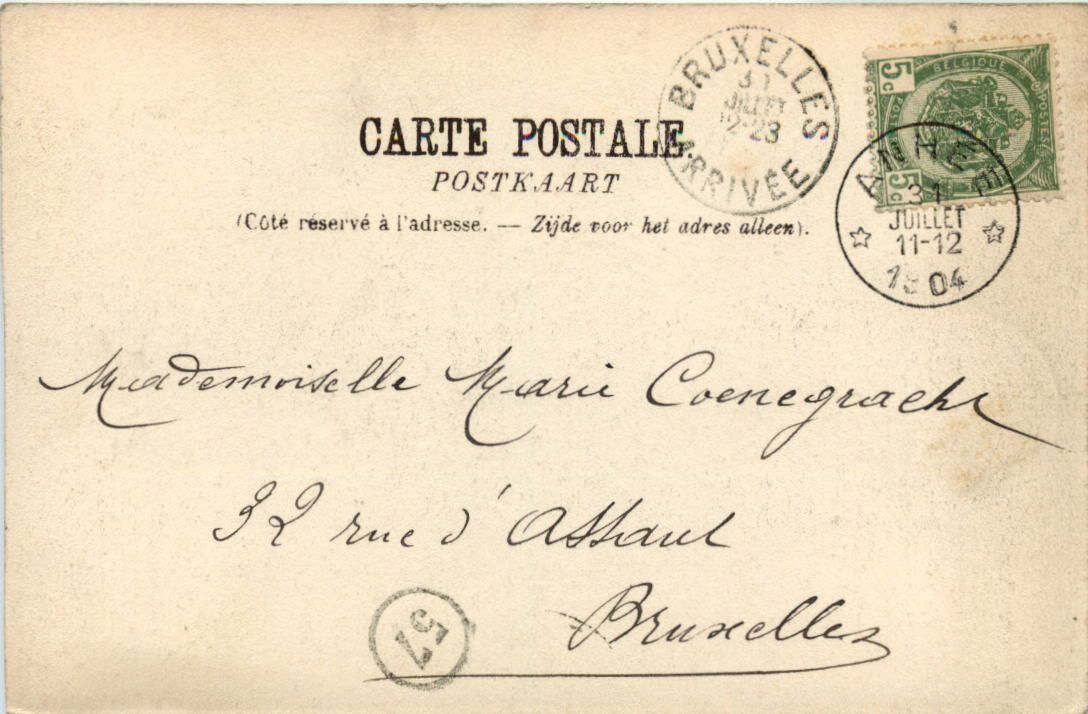 CARTE POSTALE
POSTKAART
(Côté réservé à l'adresse. — Zijde voor het adres alleen).
BRUXELLES
31
JUILLET
12-23
ARRIVÉE
BELGIQUE
POSTES
5c
5c
ANHÉE
31
JUILLET
11-12
1904
Mademoiselle Marie Coenegracht
32 rue d'Assaut
Bruxelles
57